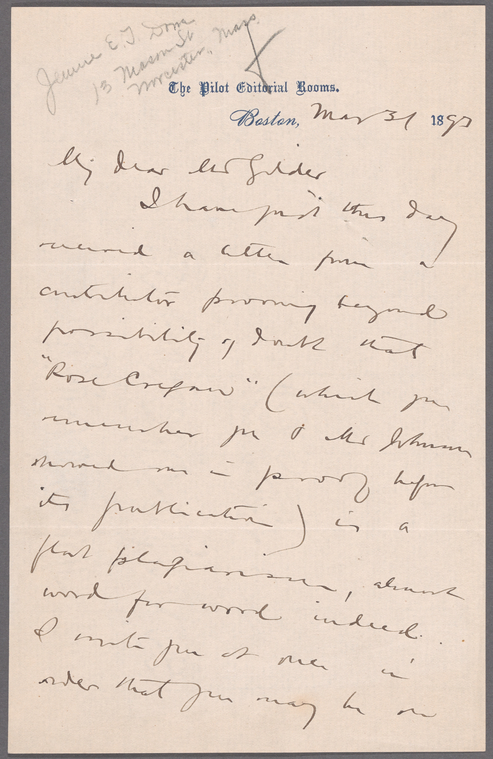 Jennie E. T. Dowe
13 Mason St
Worcester, Mass.
The Pilot Editorial Rooms.
Boston, Mar 31 1893
My dear Mr Gilder
I have just this day
received a letter from a
contributor proving beyond
possibility of doubt that
"Rose Creganeen" (which you
remember you & Mr Johnson
showed me in proof before
its publication) is a
flat plagiarism, almost
word for word indeed...
I write you at once in
order that you may be on